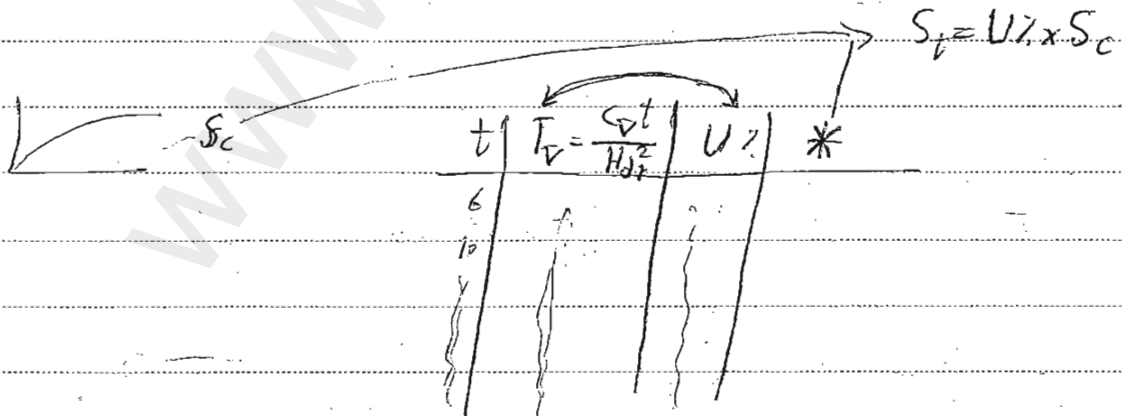 S_t = U% × S_c
S_c
t | T_v = c_v t / H_dr² | U% | *
6
10